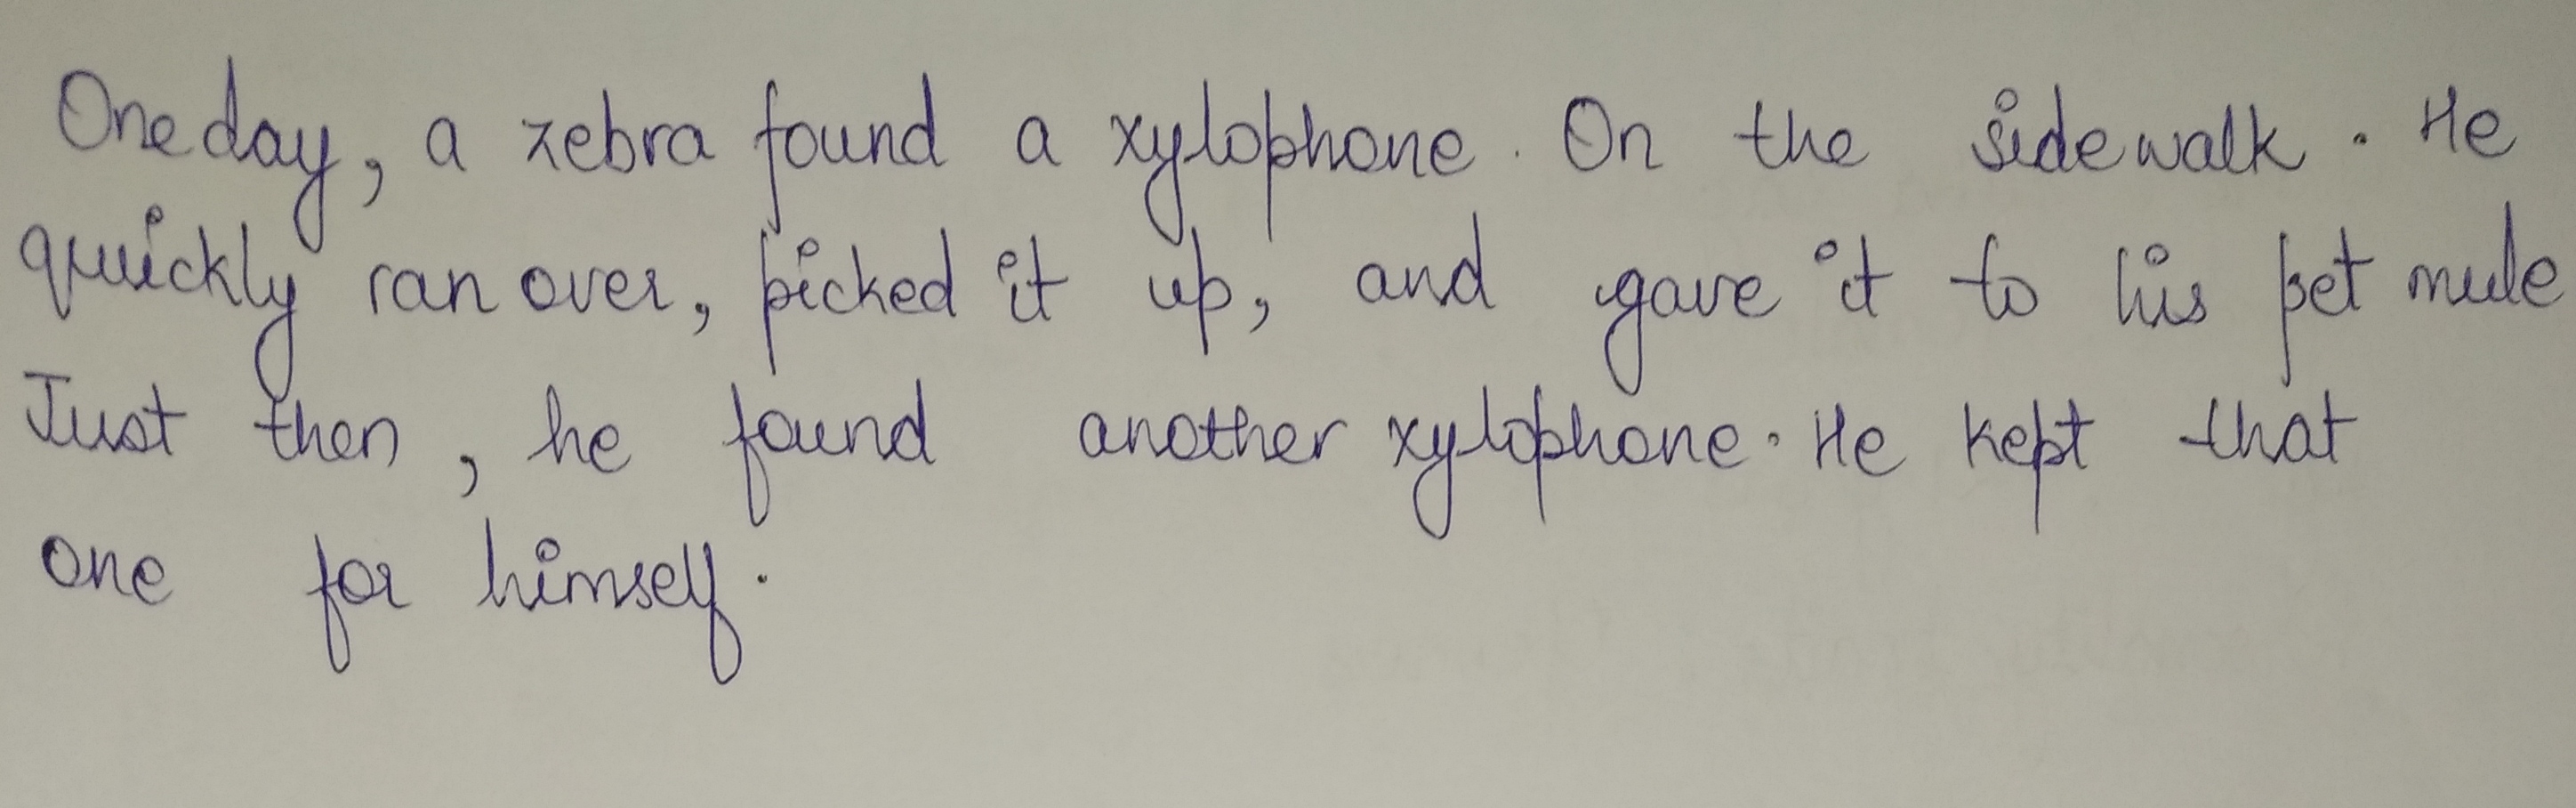 One day, a zebra found a xylophone. On the sidewalk. He
quickly ran over, picked it up, and gave it to his pet mule
Just then, he found another xylophone. He kept that
one for himself.